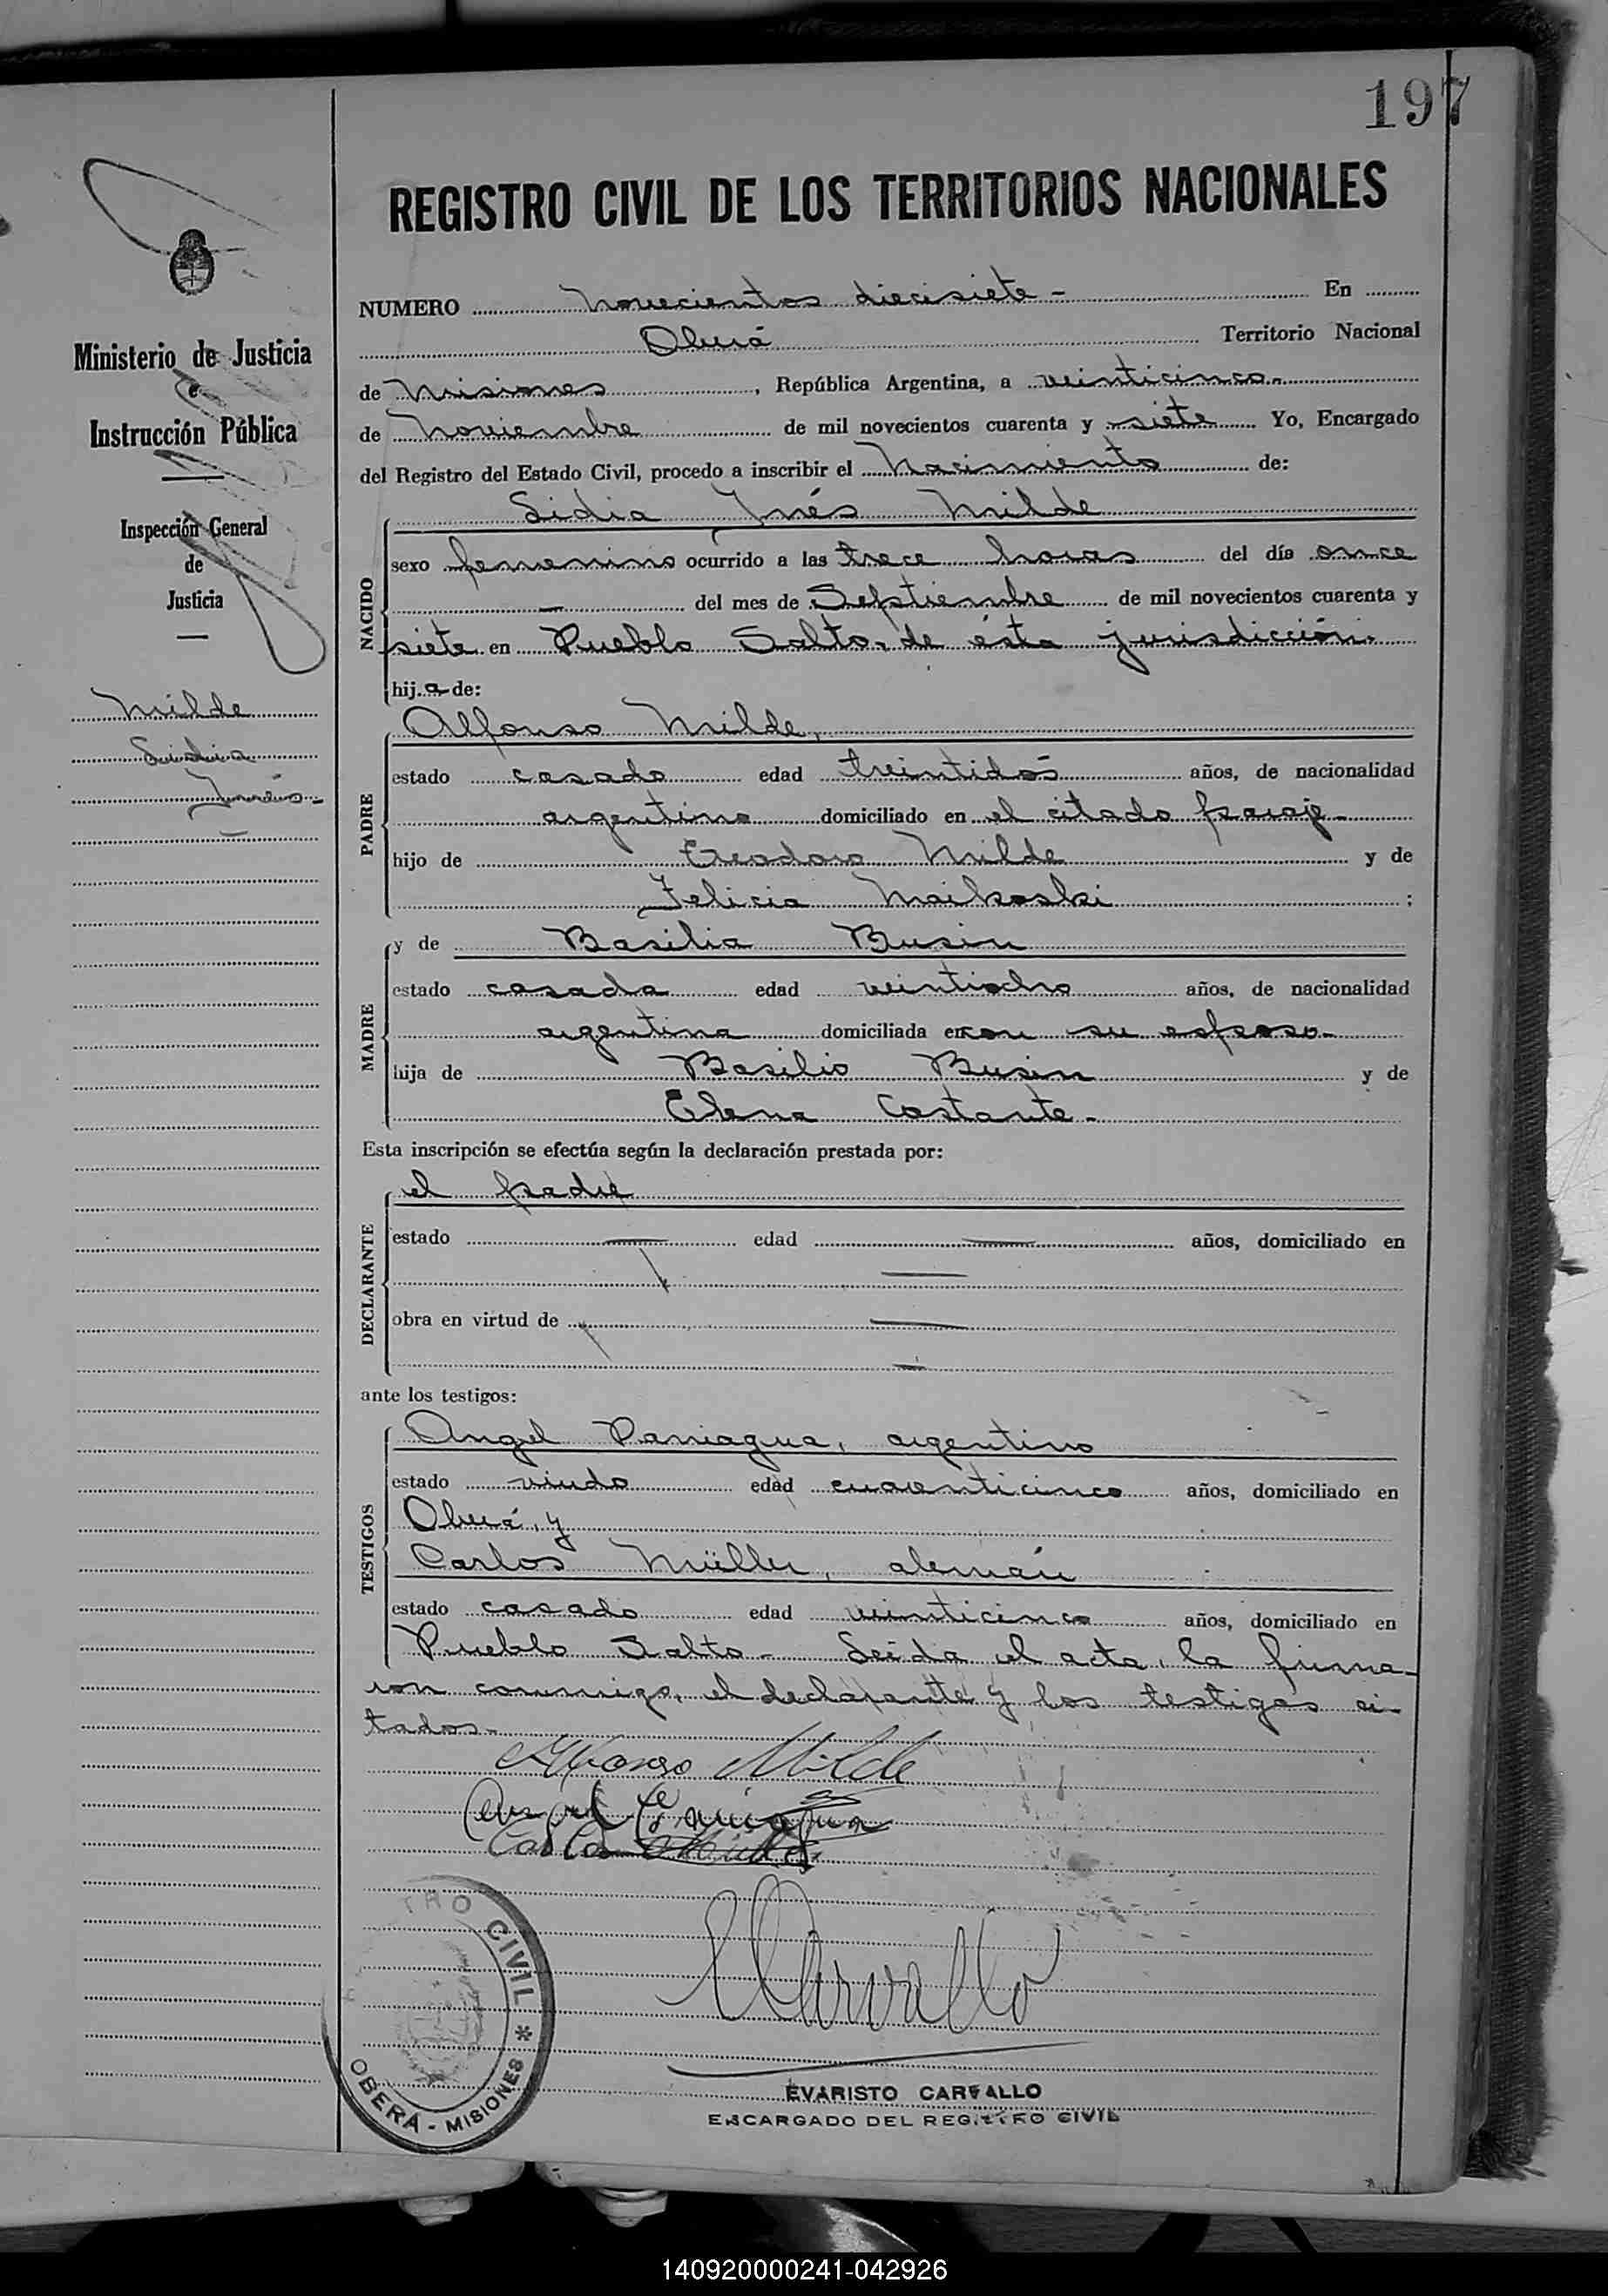 197
REGISTRO CIVIL DE LOS TERRITORIOS NACIONALES
Ministerio de Justicia
e
Instrucción Pública
Inspección General
de
Justicia
Milde
Lidia
Inés -
NUMERO novecientos diecisiete - En
Oberá Territorio Nacional
de Misiones, República Argentina, a veinticinco-
de Noviembre de mil novecientos cuarenta y siete Yo, Encargado
del Registro del Estado Civil, procedo a inscribir el Nacimiento de:
NACIDO
Lidia Inés Milde
sexo femenino ocurrido a las trece horas del día once
— del mes de Septiembre de mil novecientos cuarenta y
siete en Pueblo Salto, de ésta jurisdicción.
hija de:
PADRE
Alfonso Milde,
estado casado edad treintidós años, de nacionalidad
argentino domiciliado en el citado paraje-
hijo de Milde y de
Felicia Maikoski ;
MADRE
y de Basilia Busin
estado casada edad veintiocho años, de nacionalidad
argentina domiciliada en con su esposo-
hija de Basilio Busin y de
Elena Costante-
Esta inscripción se efectúa según la declaración prestada por:
DECLARANTE
el padre
estado — edad — años, domiciliado en
—
obra en virtud de —
—
ante los testigos:
TESTIGOS
Angel Paniagua, argentino
estado viudo edad cuarenticinco años, domiciliado en
Oberá, y
Carlos Müller, alemán
estado casado edad veinticinco años, domiciliado en
Pueblo Salto- Leída el acta, la firma-
ron conmigo, el declarante y los testigos ci-
tados-
Alfonso Milde
Angel Paniagua
Carlos Müller
ECarvallo
TRO CIVIL * OBERA - MISIONES
EVARISTO CARVALLO
ENCARGADO DEL REGISTRO CIVIL
140920000241-042926